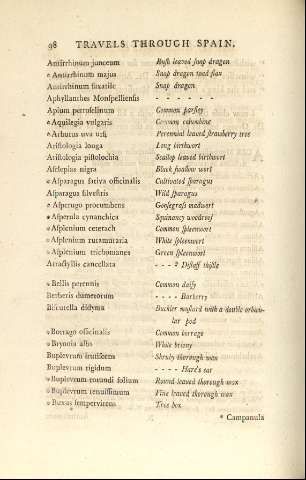 98 TRAVELS THROUGH SPAIN.
Antirrhinum junceum Rush leaved snap dragon
* Antirrhinum majus Snap dragon toad flax
Antirrhinum saxatile Snap dragon
Aphyllanthes Monspelliensis - - - - - -
Apium petroselinum Common parsley
* Aquilegia vulgaris Common columbine
* Arbutus uva ursi Perennial leaved strawberry tree
Aristologia longa Long birthwort
Aristologia pistolochia Scallop leaved birthwort
Asclepias nigra Black swallow wort
* Asparagus sativa officinalis Cultivated sparagus
Asparagus silvestris Wild sparagus
* Asperugo procumbens Goosegrass madwort
* Asperula cynanchica Squinancy woodroof
* Asplenium ceterach Common spleenwort
* Asplenium rutamuraria White spleenwort
* Asplenium trichomanes Green spleenwort
Atractylis cancellata - - - ? Distaff thistle
* Bellis perennis Common daisy
Berberis dumetorum - - - - Barberry
Biscutella didyma Buckler mustard with a double orbicu-
lar pod
* Borrago officinalis Common borrage
* Bryonia alba White briony
Buplevrum fruticosum Shrubby thorough wax
Buplevrum rigidum - - - - Hare's ear
* Buplevrum rotundi folium Round leaved thorough wax
* Buplevrum tenuissimum Fine leaved thorough wax
* Buxus sempervirens Tree box
* Campanula